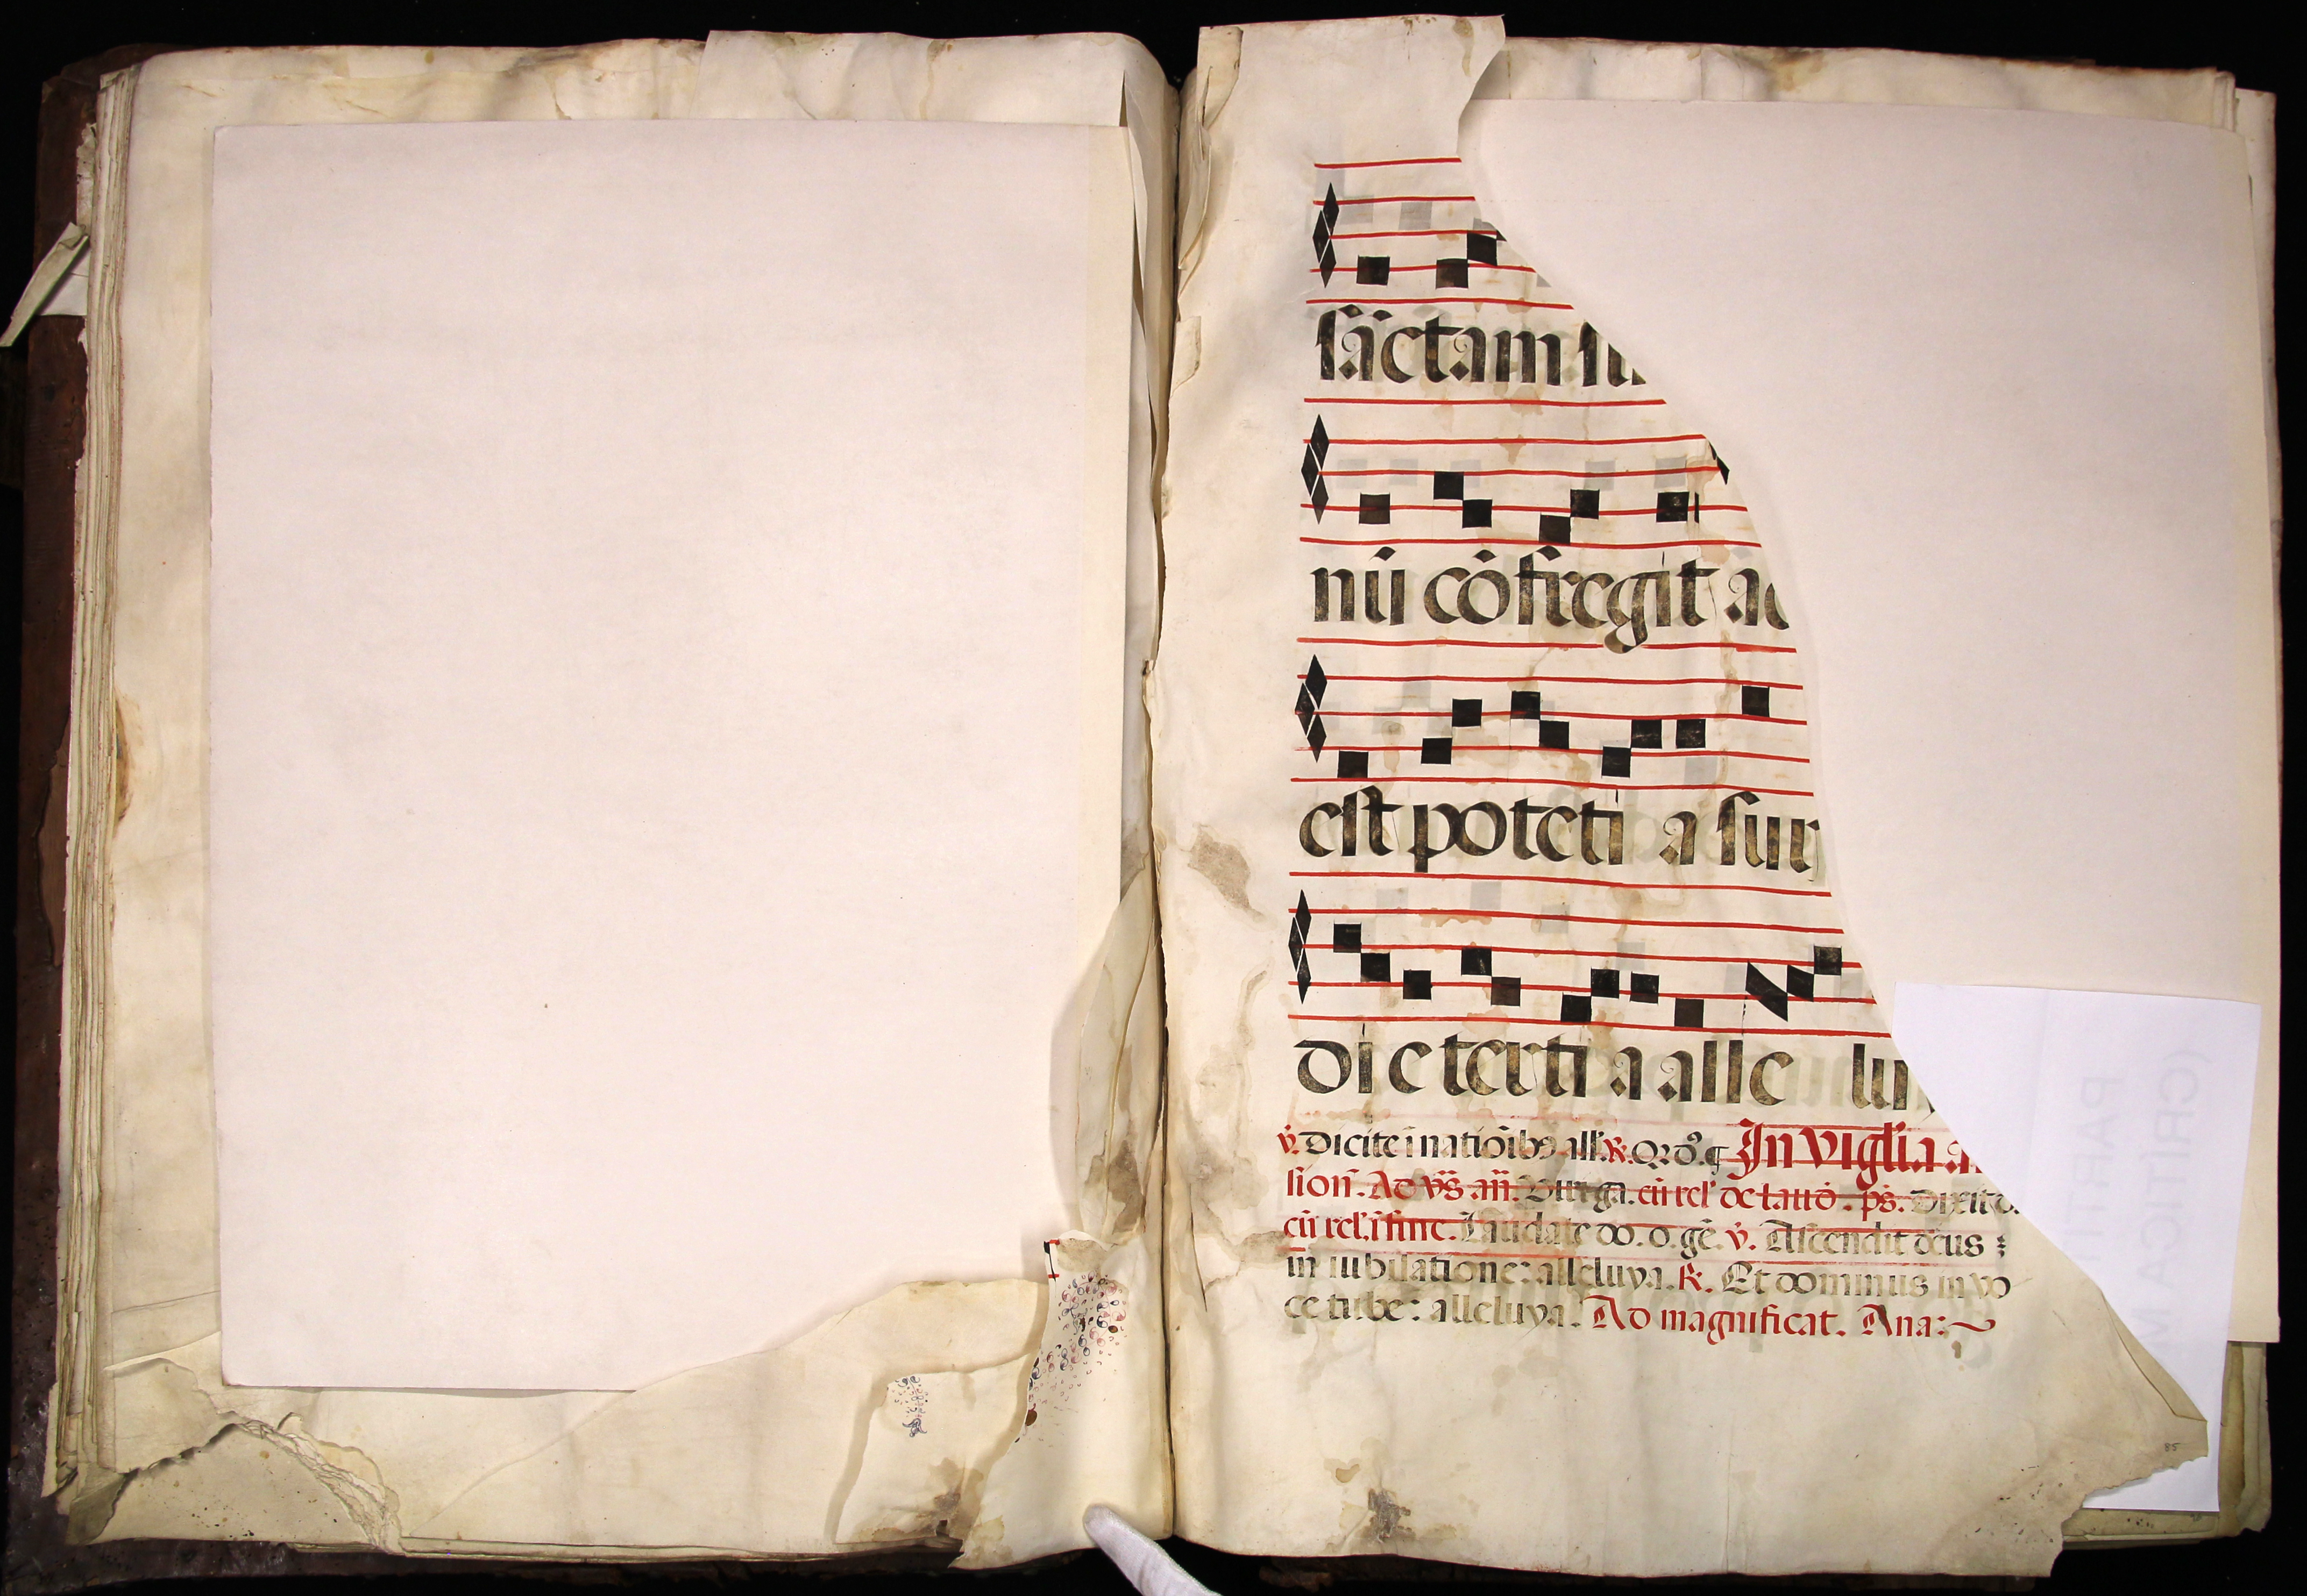 sāctam su
nū cōfregit ad
est poteti a surr
di e terti a alle lu
℣. Dicite ī natiōibꝰ all'. ℟. Qꝛ dō. ¶ In vigl'ia a
sion̄. Ad vs̄ añ. Virga. cū rel' de laud'. ps. Dixit d.
cū rel'. ī fine. Laudate do. o. gē. ℣. Ascendit deus
in iubilatione: alleluya. ℟. Et dominus in vo
ce tube: alleluya. Ad magnificat. Ana:
85